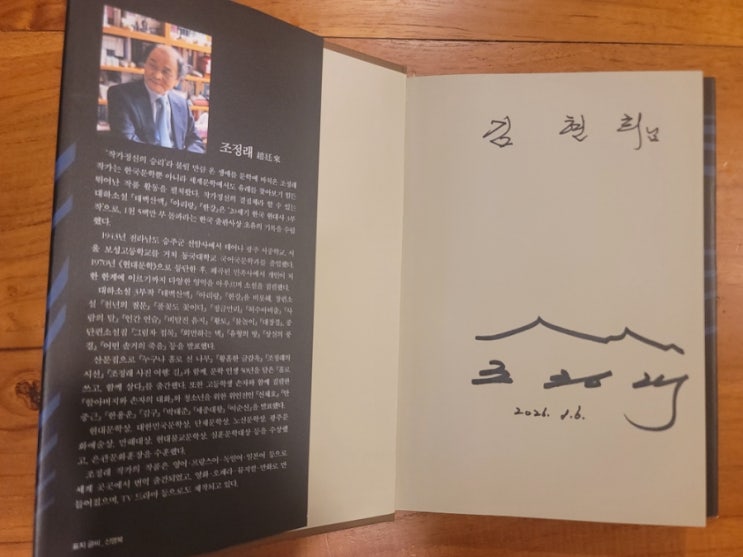 조정래 趙廷來
'작가정신의 승리'라 불릴 만큼 온 생애를 문학에 바쳐온 조정래
작가는 한국문학뿐 아니라 세계문학에서도 유례를 찾아보기 힘든
뛰어난 작품 활동을 펼쳐왔다. 작가정신의 결집체라 할 수 있는
대하소설 『태백산맥』『아리랑』『한강』은 '20세기 한국 현대사 3부
작'으로, 1천 5백만 부 돌파라는 한국 출판사상 초유의 기록을 수립
했다.
1943년 전라남도 승주군 선암사에서 태어나 광주 서중학교, 서
울 보성고등학교를 거쳐 동국대학교 국어국문학과를 졸업했다.
1970년 《현대문학》으로 등단한 후, 왜곡된 민족사에서 개인이 처
한 한계에 이르기까지 다양한 영역을 아우르며 소설을 집필했다.
대하소설 3부작 『태백산맥』『아리랑』『한강』을 비롯해, 장편소
설 『천년의 질문』『풀꽃도 꽃이다』『정글만리』『허수아비춤』『사
람의 탈』『인간 연습』『비탈진 음지』『황토』『불놀이』『대장경』, 중
단편소설집 『그림자 접목』『외면하는 벽』『유형의 땅』『상실의 풍
경』『어떤 솔거의 죽음』 등을 발표했다.
산문집으로 『누구나 홀로 선 나무』『황홀한 글감옥』『조정래의
시선』『조정래 사진 여행: 길』과 함께, 문학 인생 50년을 담은 『홀로
쓰고, 함께 살다』를 출간했다. 또한 고등학생 손자와 함께 집필한
『할아버지와 손자의 대화』와 청소년을 위한 위인전인 『신채호』『안
중근』『한용운』『김구』『박태준』『세종대왕』『이순신』을 발표했다.
현대문학상, 대한민국문학상, 단재문학상, 노신문학상, 광주문
화예술상, 만해대상, 현대불교문학상, 심훈문학대상 등을 수상했
고, 은관문화훈장을 수훈했다.
조정래 작가의 작품은 영어·프랑스어·독일어·일본어 등으로
세계 곳곳에서 번역 출간되었고, 영화·오페라·뮤지컬·만화로 만
들어졌으며, TV 드라마 등으로도 제작되고 있다.
표지 글씨_신영복
김 현 희님
조정래
2021. 1. 6.